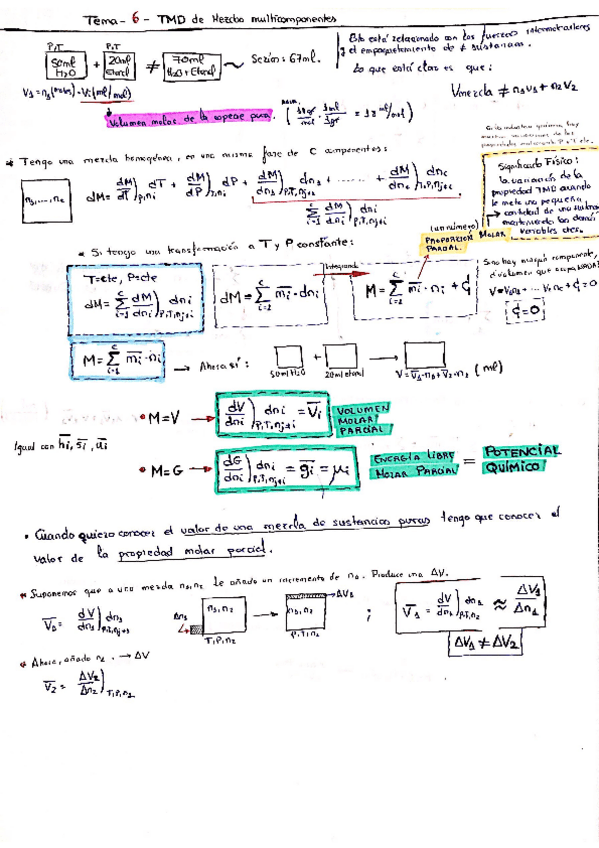 Tema - 6 - TMD de Mezclas multicomponentes
P,T P,T
50ml H2O + 20ml Etanol ≠ 70ml H2O + Etanol ~ Serían: 67ml.
Esto está relacionado con las fuerzas intermoleculares
y el empaquetamiento de ≠ sustancias.
Lo que está claro es que:
Vmezcla ≠ n1v1 + n2V2
Volumen molar de la especie pura.
Tengo una mezcla homogénea, en una misma fase de C componentes:
n1,...,nc
dM = dM/dT)P,ni dT + dM/dP)T,ni dP + dM/dn1)P,T,nj≠i dn1 + ...... + dM/dnc)T,P,nj≠i dnc
Σ i=1 c dM/dni)P,T,nj≠i dni
Significado Físico:
la variación de la
propiedad TMD cuando
le meto una pequeña
cantidad de una sustancia
manteniendo las demás
variables ctes.
(un número)
PROPORCIÓN MOLAR
PARCIAL.
Si tengo una transformación a T y P constante:
T=cte, P=cte
dM = Σ i=1 c dM/dni)P,T,nj≠i dni
dM = Σ i=1 c m̄i · dni
Integrando
M = Σ i=1 c m̄i · ni + C
Si no hay ningún componente,
el volumen que ocupa NADA!
C = 0
M = Σ i=1 c m̄i · ni → Ahora sí:
50ml H2O + 20ml etanol → V = V̄1·n1 + V̄2·n2 (ml)
• M=V → dV/dni)P,T,nj≠i dni = V̄i
VOLUMEN
MOLAR
PARCIAL
Igual con h̄i, s̄i, āi
• M=G → dG/dni)P,T,nj≠i dni = ḡi = μi
ENERGÍA LIBRE
MOLAR PARCIAL = POTENCIAL
QUÍMICO
• Cuando quiero conocer el valor de una mezcla de sustancias puras tengo que conocer el
valor de la propiedad molar parcial.
Suponemos que a una mezcla n1,n2 le añado un incremento de n1. Produce una ΔV.
V̄1 = dV/dn1)P,T,nj≠i dn1
Δn1
n1,n2
T,P,n2
→
n1,n2
ΔV1
P,T,n2
;
V̄1 = dV/dn1)P,T,n2 dn1 ≈ ΔV1/Δn1
ΔV1 ≠ ΔV2
Ahora, añado n2. → ΔV
V̄2 = ΔV2/Δn2)T,P,n1